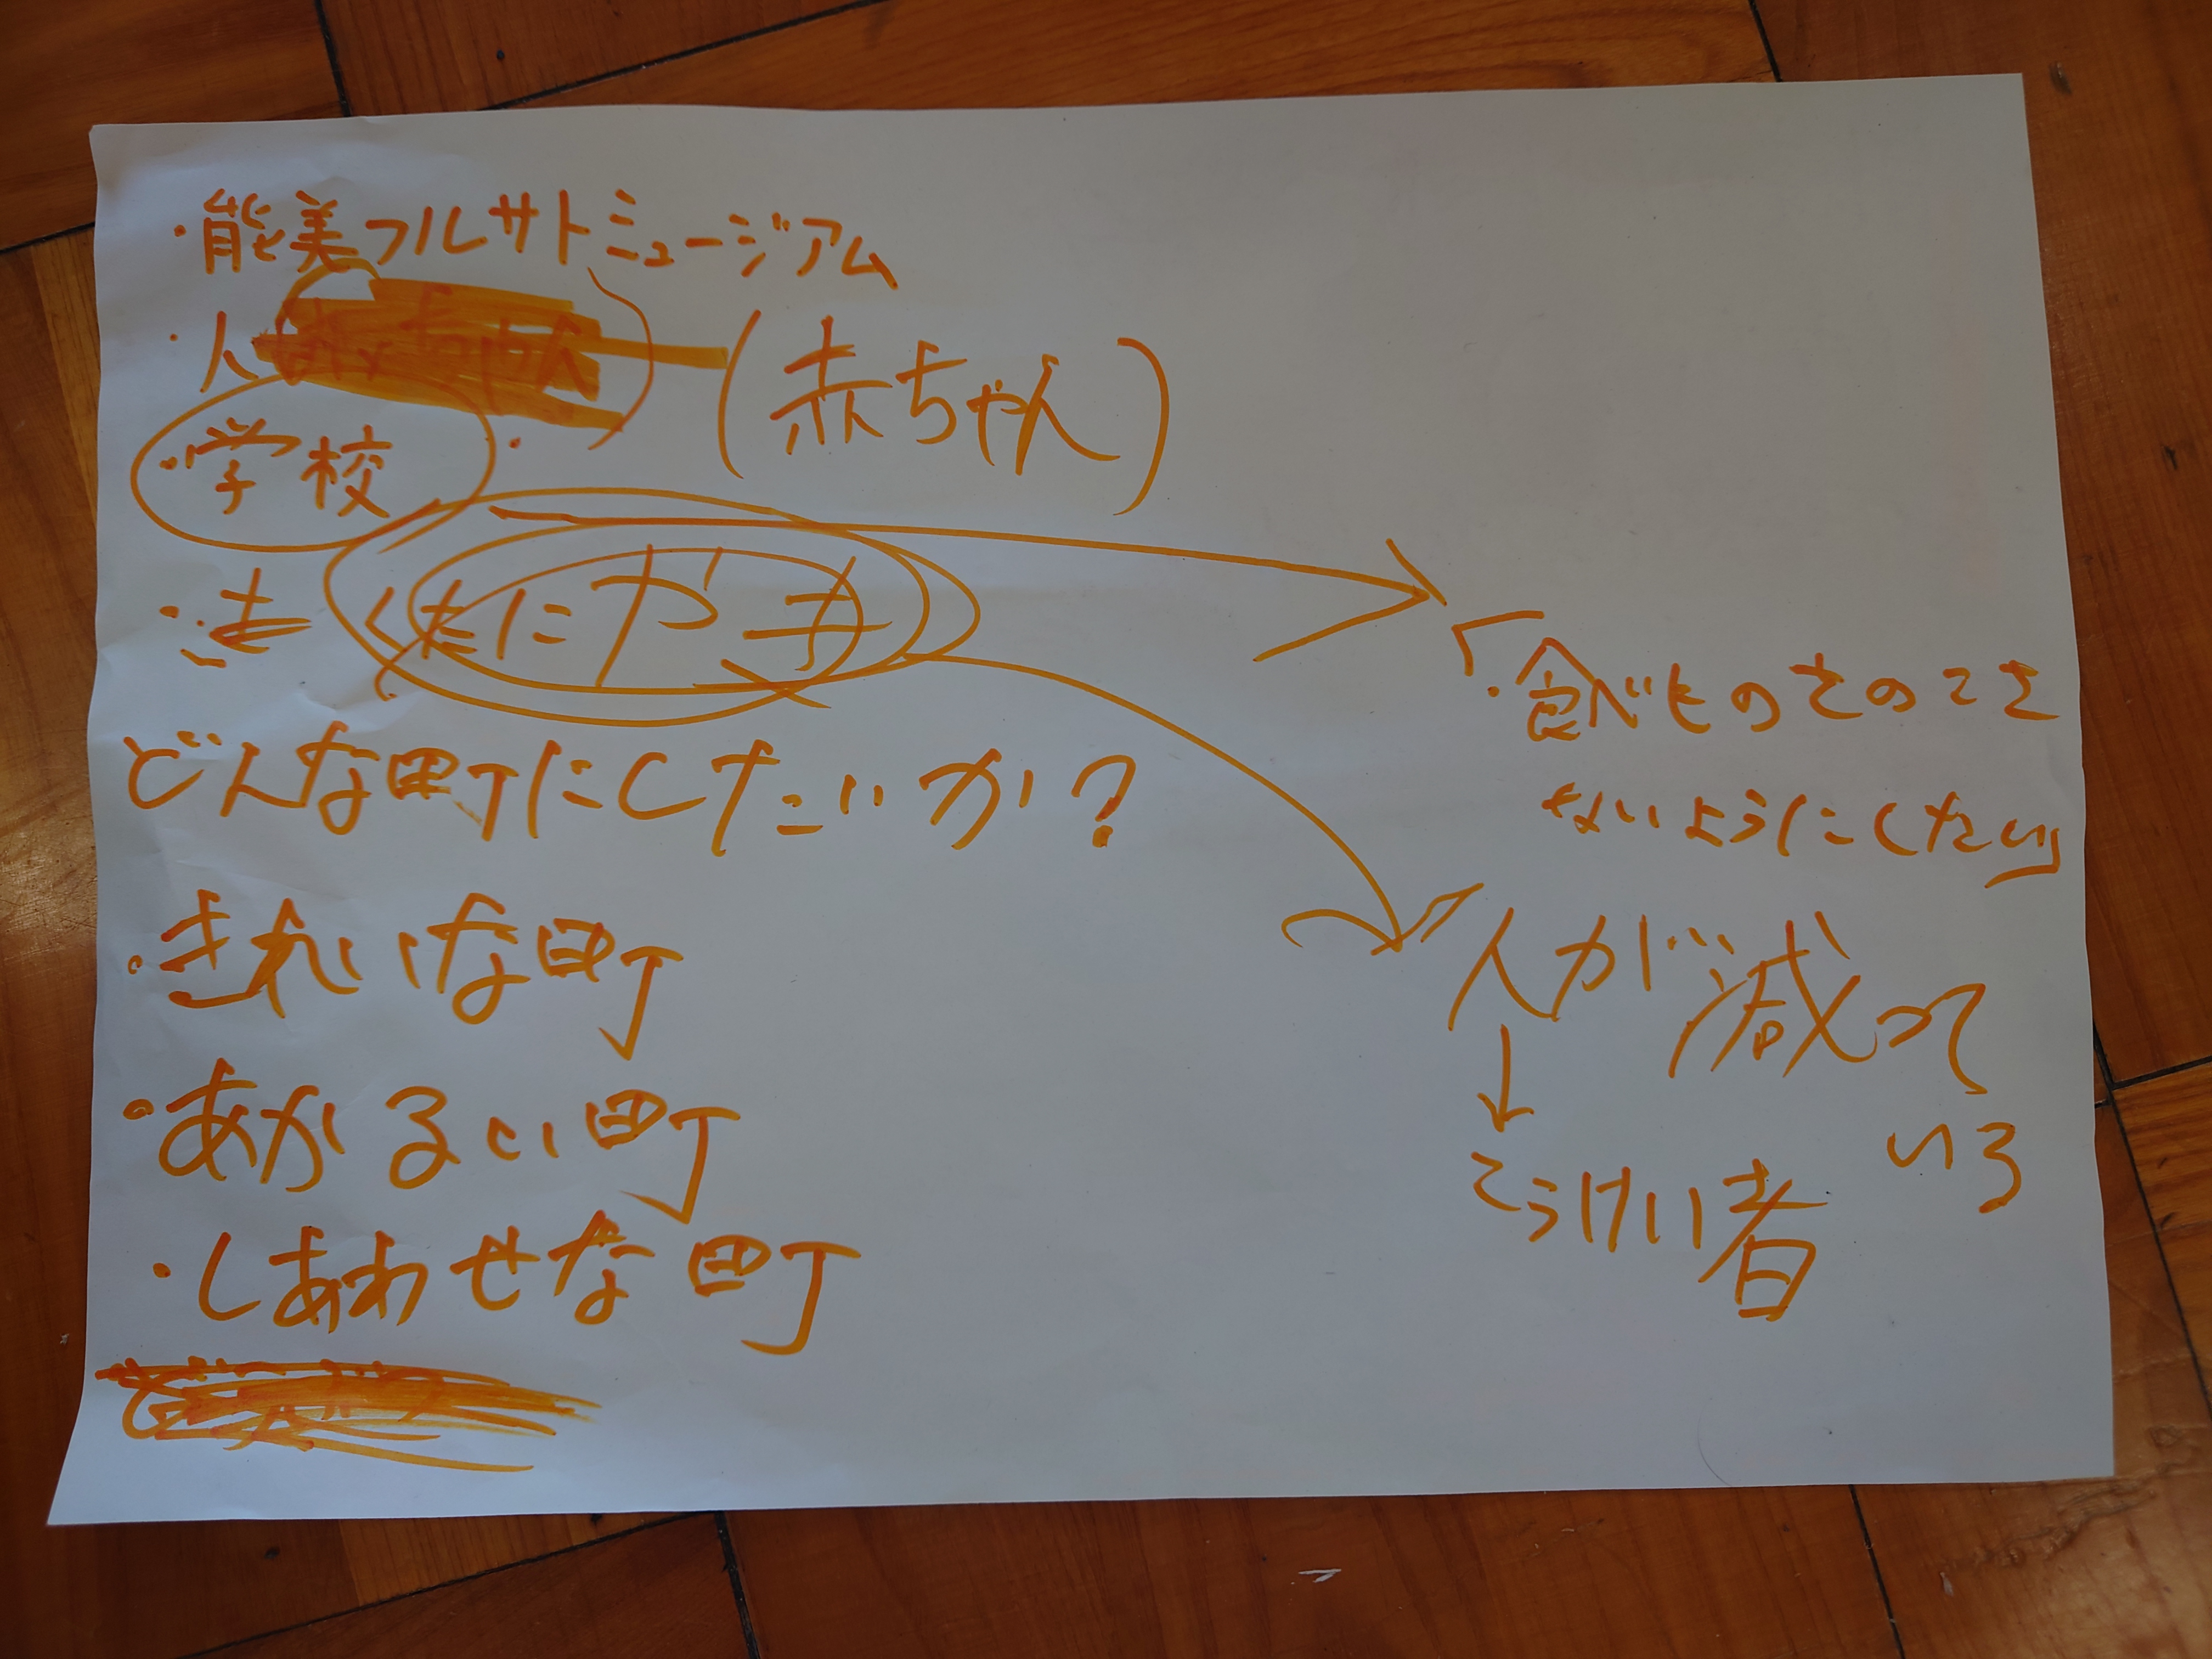 ・能美フルサトミュージアム
・人 (赤ちゃん)
・学校
・法 くたにやき
どんな町にしたいか?
・きれいな町
・あかるい町
・しあわせな町
「・食べものをのこさ
ないようにしたい」
人が減って
いる
↓
こうけい者